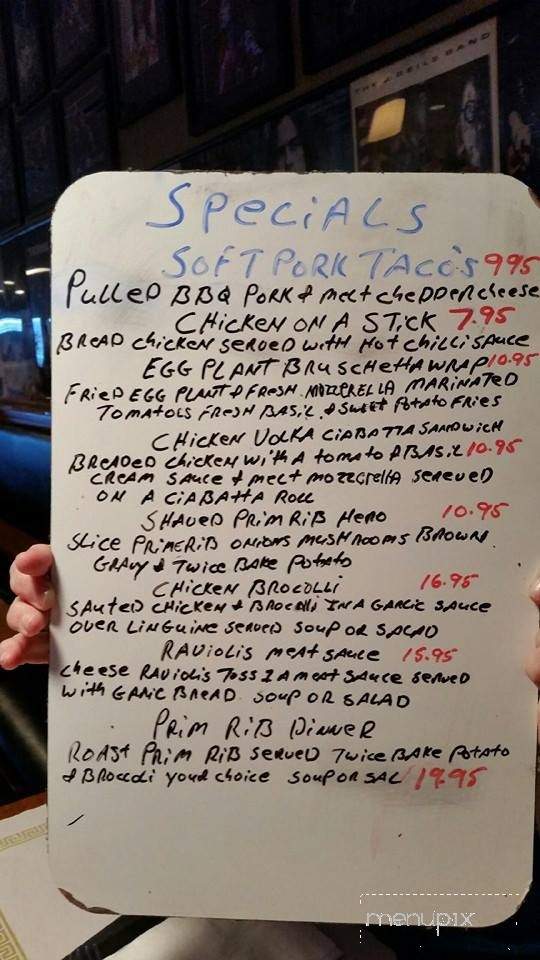 THE J. GEILS BAND
SPeCiALS
SOFT PORK TACO'S 995
PulleD BBQ PORK & melt cheDDer cheese
CHicKeN ON A STicK 7.95
BReAD chicken seRveD with Hot chilli sauce
EGG PLANT BRuschettA WRAP 10.95
FRieD EGG PLANT & FResh MOZZERELLA MARiNATeD
TOMATOES FResh BASiL & SWeet Potato FRies
CHicKeN VODKA CiABATTA SANDWicH
BReADeD chicken with A tomAto & BAsiL 10.95
CReAM SAuce & melt mozzerella seRveD
ON A CiABAttA Roll
SHAveD PRim RiB HeRO 10.95
SLice PRimeRiB ONiONs musHROOms BROWN
GRAvy & Twice BAKe PotAto
CHicKeN BROCOLLi 16.95
SAuteD CHicKeN & BROcolli IN A GARLic SAuce
OVeR LiNGuiNe seRveD SOuP OR SALAD
RAviOLis meAt SAuce 15.95
cheese RAviOLis Toss I A meAt SAuce seRveD
WitH GARlic BReAD SOuP OR SALAD
PRim RiB DiNNeR
ROAST PRim RiB seRveD Twice BAKe PotAto
& BRoccoli your choice SOuP OR SAL 19.95
menupix